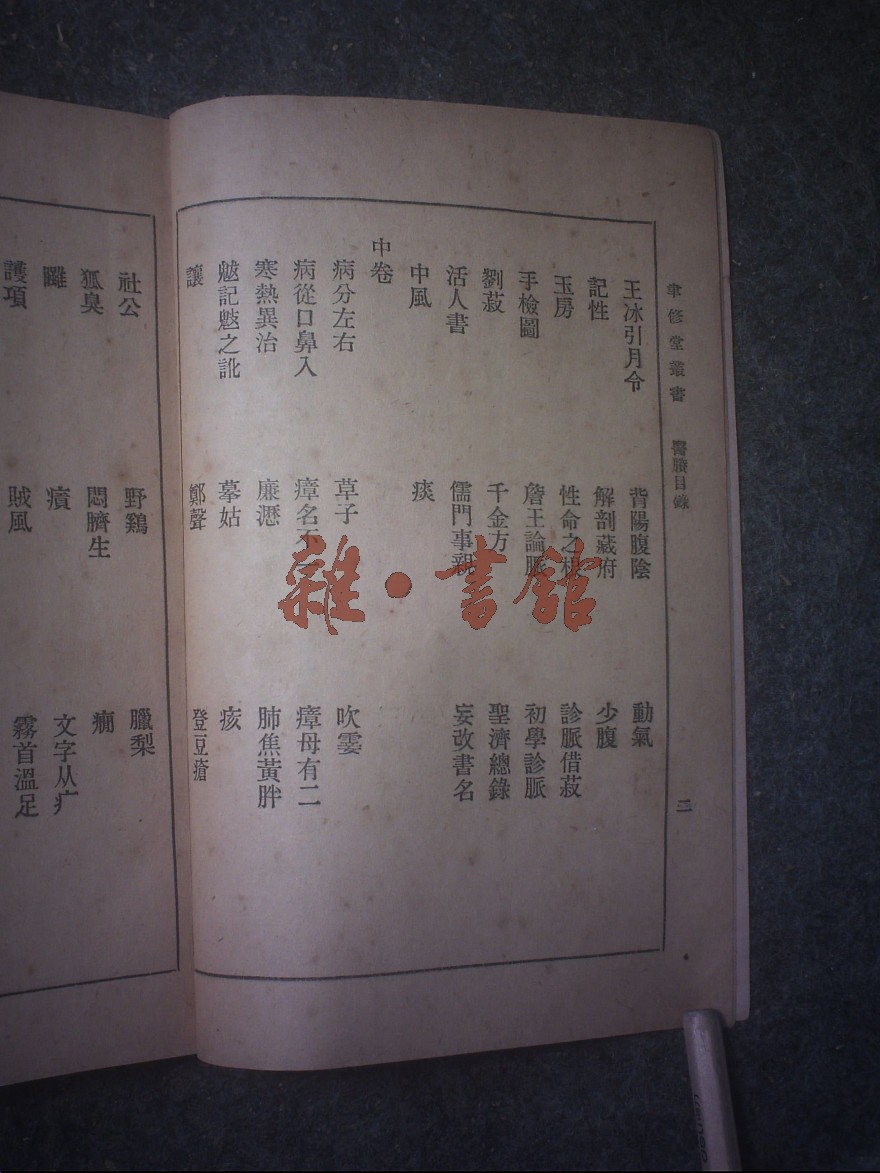 聿修堂叢書 醫賸目錄 二
王冰引月令 背陽腹陰 動氣
記性 解剖藏府 少腹
玉房 性命之 診脈借菽
手檢圖 詹王論脈 初學診脈
劉菽 千金方 聖濟總錄
活人書 儒門事親 妄改書名
中風 痰
中卷
病分左右 草子 吹霎
病從口鼻入 瘴名不一 瘴母有二
寒熱異治 廉瀝 肺焦黃胖
魃記魃之訛 摹姑 痎
讓 鄭聲 登豆瘡
社公 野鷄 臘梨
狐臭 悶臍生 癇
㿔 文字从疒
護項 賊風 霧首溫足
雜·書館